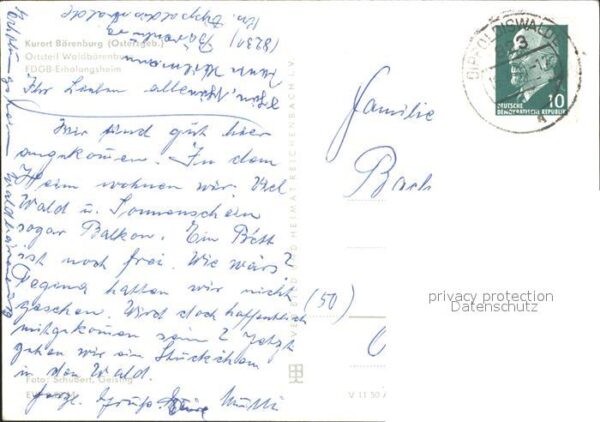 Kurort Bärenburg (Osterzgeb.)
Ortsteil Waldbärenburg
FDGB-Erholungsheim
Ihr Lieben alle
Wir sind gut hier
angekommen. In dem
Heim wohnen wir. Viel
Wald u. Sonnenschein
sogar Balkon. Ein Bett
ist noch frei. Wie wärs?
hatten wir nicht
gesehen. Wird doch hoffentlich
mitgekommen sein? Jetzt
gehen wir ein Stückchen
in den Wald.
Foto: Schubert, Geising
Grüße Mutti
(8230) Bärenburg
Kr. Dippoldiswalde
Erholungsheim Waldbärenburg
VERLAG BILD UND HEIMAT REICHENBACH I. V.
V 11 50
Familie
Bach
(50)
DIPPOLDISWALDE
3
10
DEUTSCHE
DEMOKRATISCHE REPUBLIK
privacy protection
Datenschutz